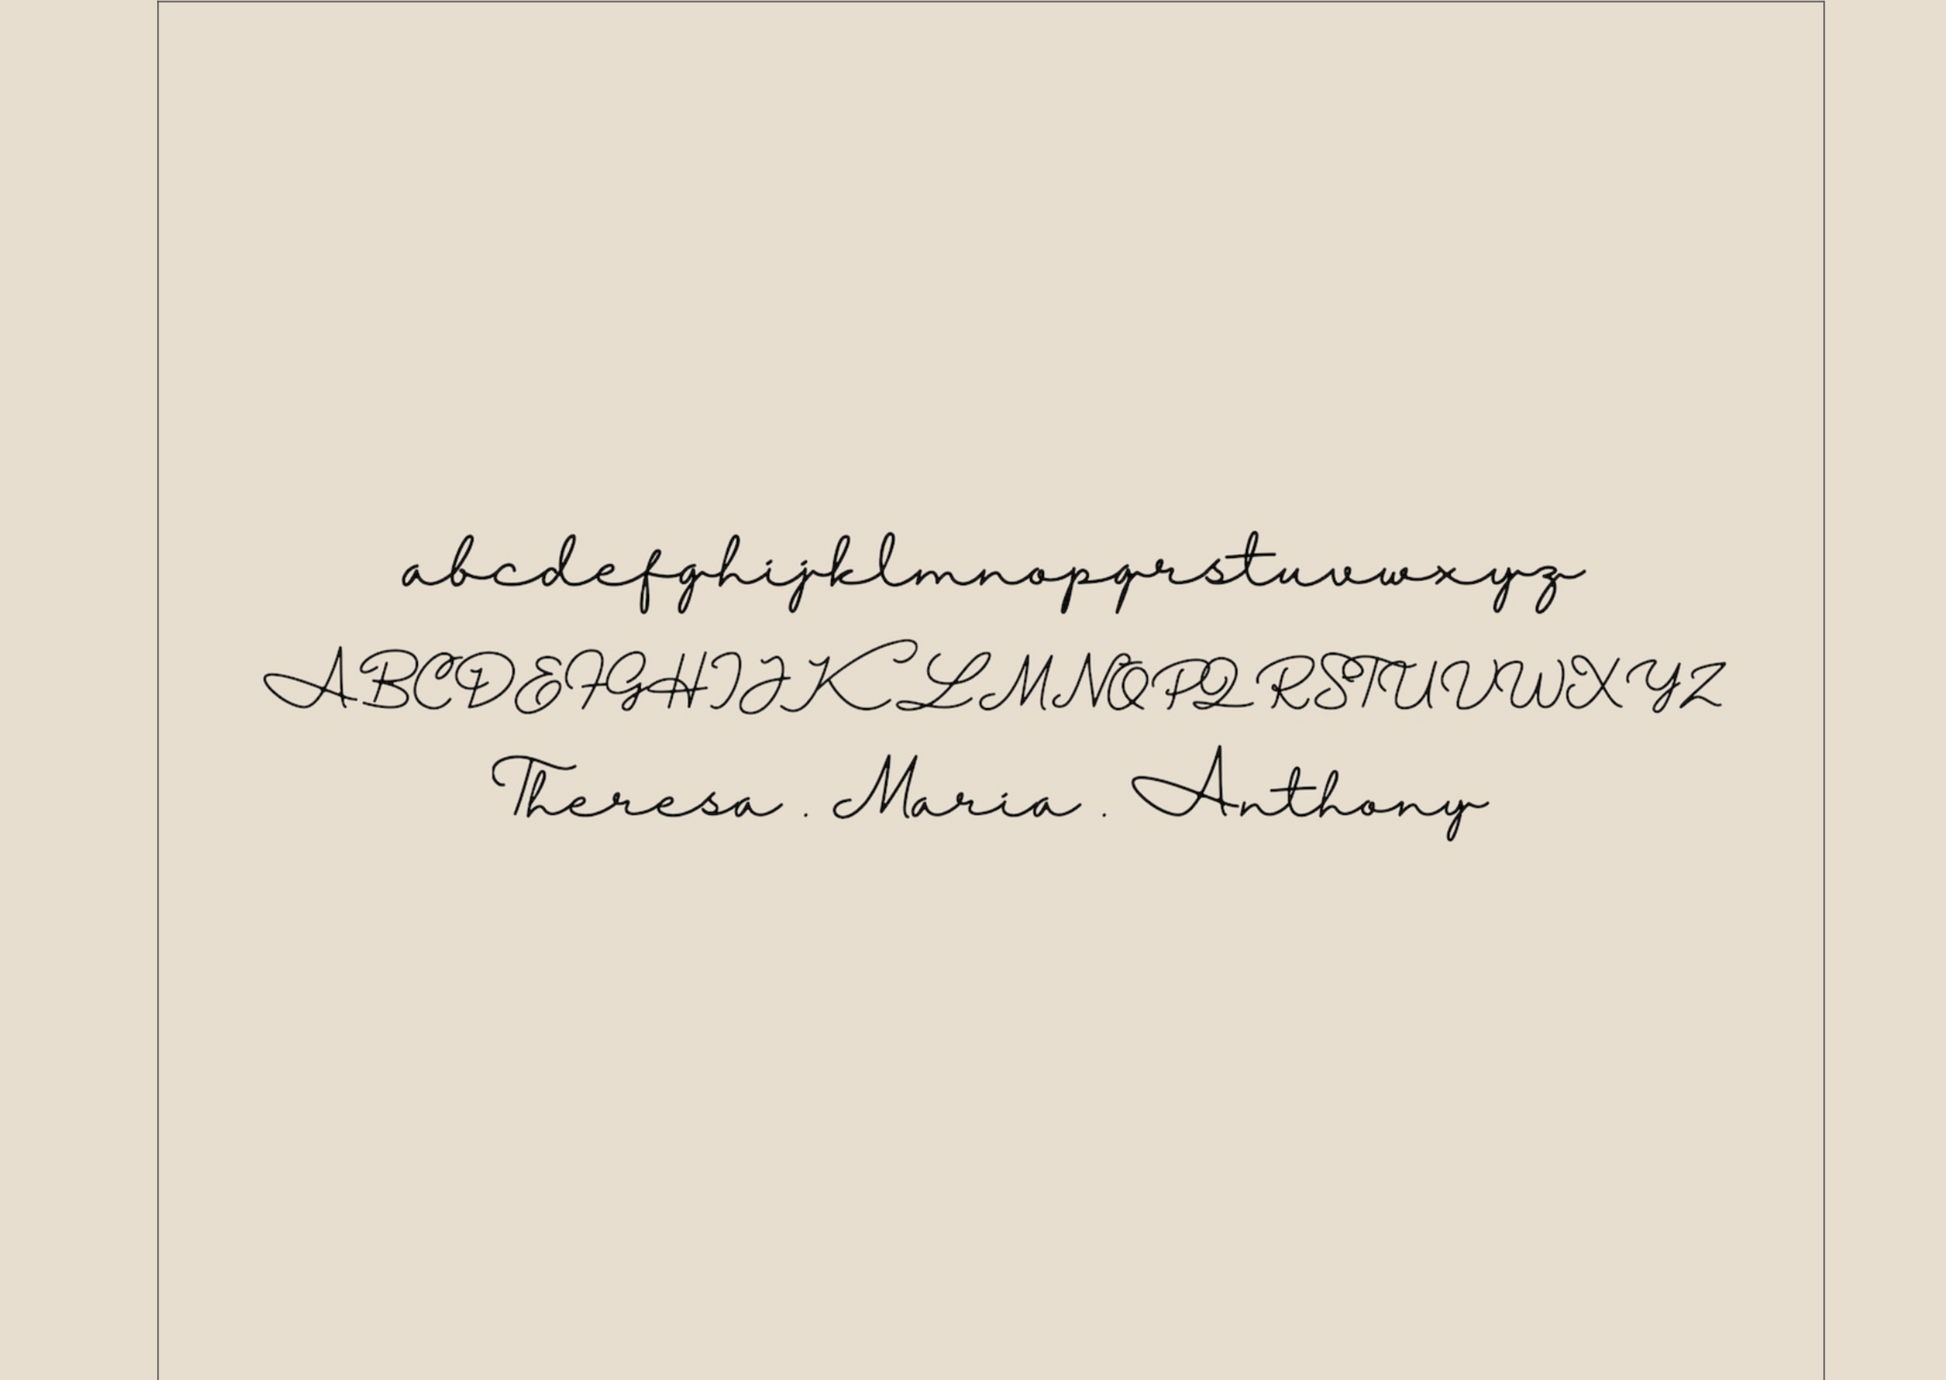 abcdefghijklmnopqrstuvwxyz
ABCDEFGHIJKLMNOPQRSTUVWXYZ
Theresa . Maria . Anthony